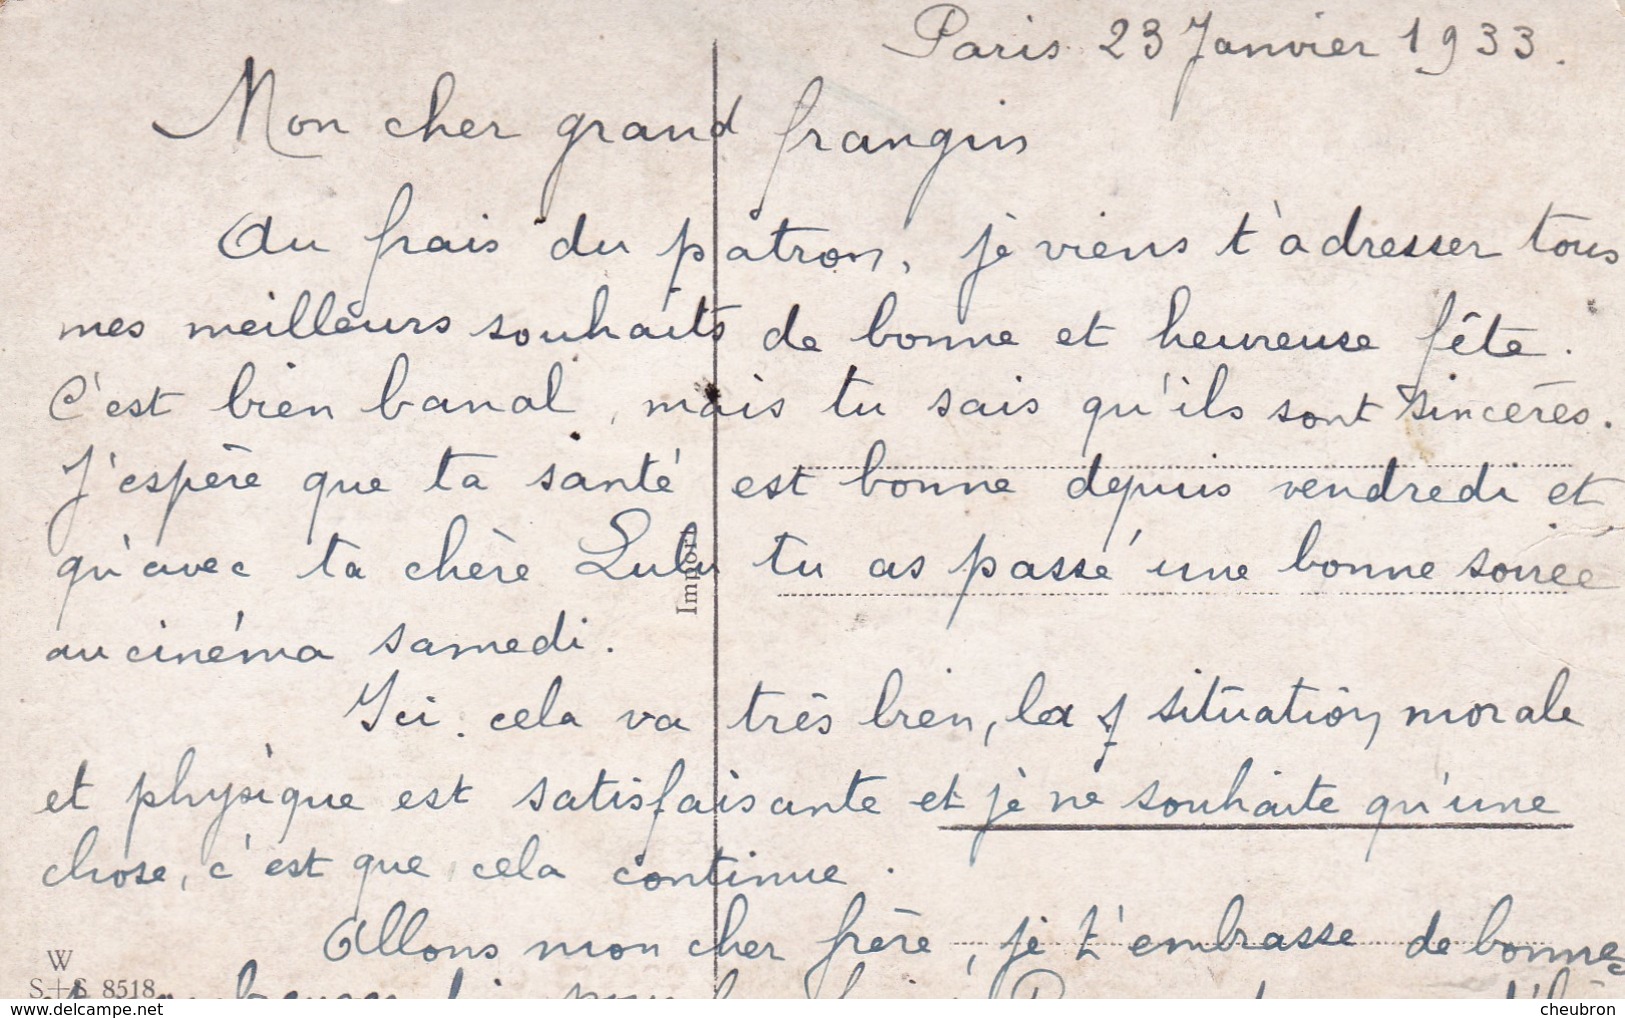 Paris 23 Janvier 1933.
Mon cher grand frangin
Au frais du patron, je viens t'adresser tous
mes meilleurs souhaits de bonne et heureuse fête.
C'est bien banal, mais tu sais qu'ils sont sincères.
J'espère que ta santé est bonne depuis vendredi et
qu'avec ta chère Lulu tu as passé une bonne soirée
au cinéma samedi.
Ici cela va très bien, la situation morale
et physique est satisfaisante et je ne souhaite qu'une
chose, c'est que cela continue.
Allons mon cher frère, je t'embrasse de bonne
Import
W
S+S 8518
delcampe.net
cheubron